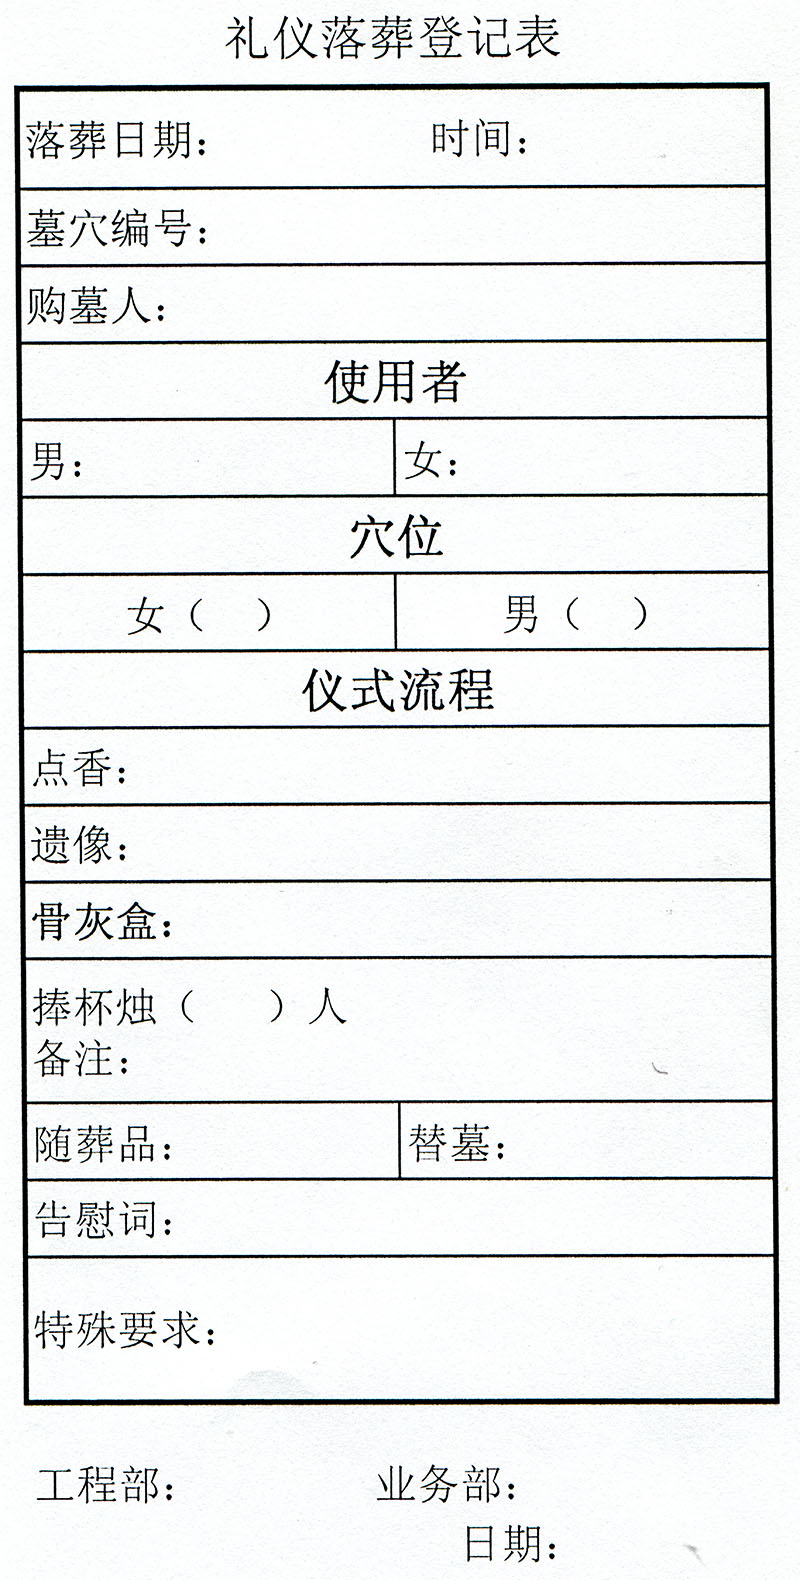 礼仪落葬登记表
落葬日期： 时间：
墓穴编号：
购墓人：
使用者
男： 女：
穴位
女（ ） 男（ ）
仪式流程
点香：
遗像：
骨灰盒：
捧杯烛（ ）人
备注：
随葬品： 替墓：
告慰词：
特殊要求：
工程部： 业务部：
日期：